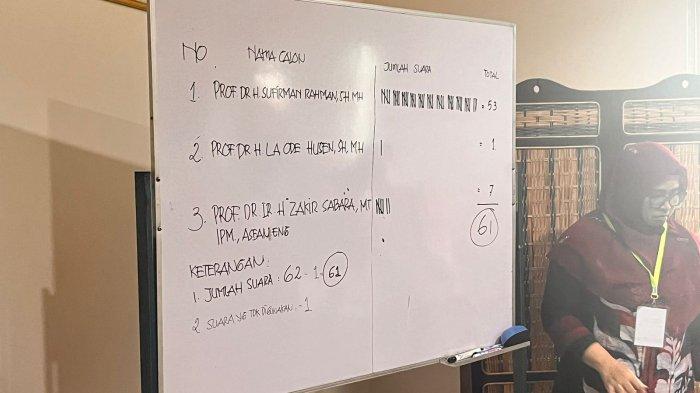 NO NAMA CALON JUMLAH SUARA TOTAL
1. PROF. DR. H. SUFIRMAN RAHMAN, SH. MH = 53
2. PROF. DR. H. LA ODE HUSEN, SH, M.H = 1
3. PROF. DR. IR. H. ZAKIR SABARA, MT = 7
IPM., ASEAN ENG 61
KETERANGAN :
1. JUMLAH SUARA : 62 - 1 = 61
2 SUARA YG TDK DIGUNAKAN : - 1